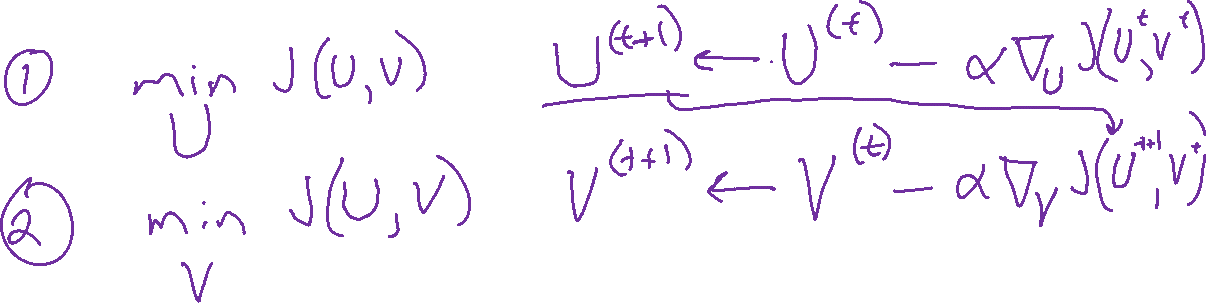 ① min_U J(U,V) U^(t+1) ← U^(t) − α∇_U J(U^t, V^t)
② min_V J(U,V) V^(t+1) ← V^(t) − α∇_V J(U^t+1, V^t)